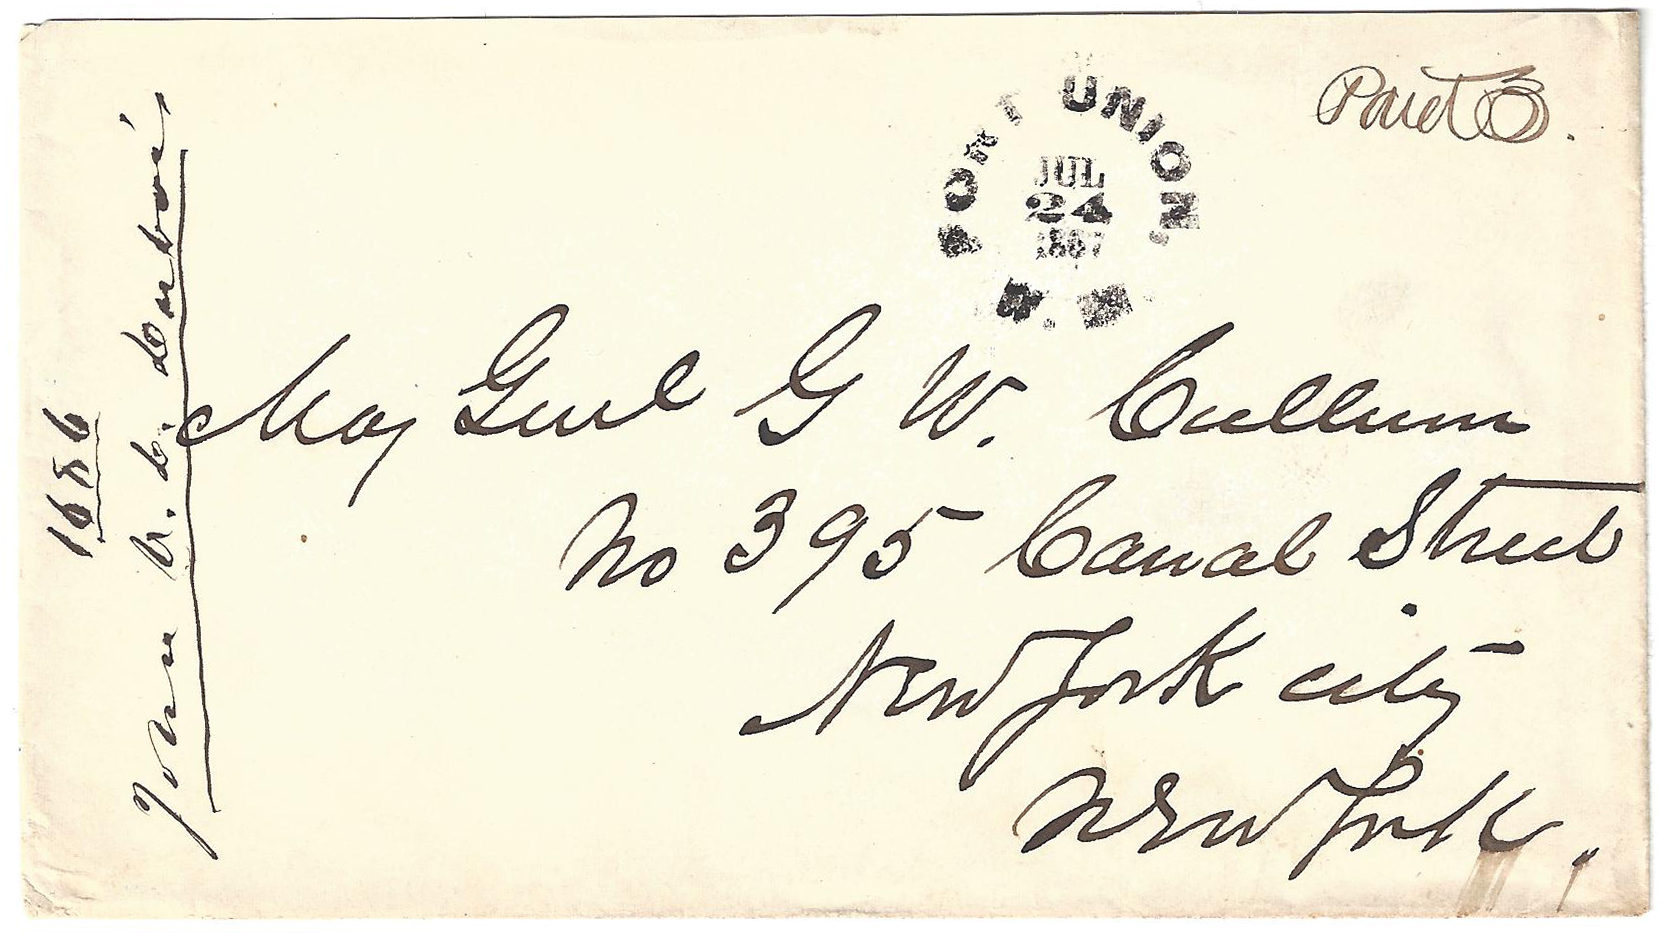 Paid 3.
FORT UNION,
JUL
24
1867
N. M.
Maj Genl G W. Cullum
No 395 Canal Street
New York city
New York.
1686